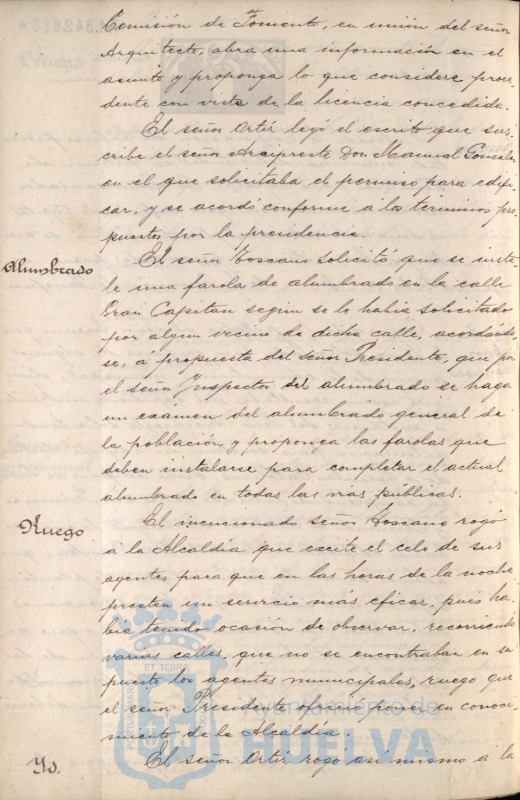 Comisión de Fomento, en unión del señor
Arquitecto, abra una información en el
asunto y proponga lo que considere proce-
dente con vista de la licencia concedida.
El señor Ortiz leyó el escrito que sus-
cribe el señor Arcipreste Don Manuel González
en el que solicitaba el permiso para edifi-
car, y se acordó conforme á los términos pro-
puestos por la presidencia.
Alumbrado
El señor Toscano solicitó que se insta-
le una farola de alumbrado en la calle
Gran Capitan segun se le habia solicitado
por algun vecino de dicha calle, acordándo-
se, á propuesta del señor Presidente, que por
el señor Inspector del alumbrado se haga
un examen del alumbrado general de
la población y proponga las farolas que
deben instalarse para completar el actual
alumbrado en todas las vias públicas.
Ruego
El mencionado señor Toscano rogó
á la Alcaldía que excite el celo de sus
agentes para que en las horas de la noche
presten un servicio más eficaz, pues ha-
bia tenido ocasión de observar, recorriendo
varias calles, que no se encontraban en su
puesto los agentes municipales, ruego que
el señor Presidente ofreció poner en conoci-
miento de la Alcaldía.
Yd.
El señor Ortiz rogó asi mismo á la
Ayuntamiento de
HUELVA